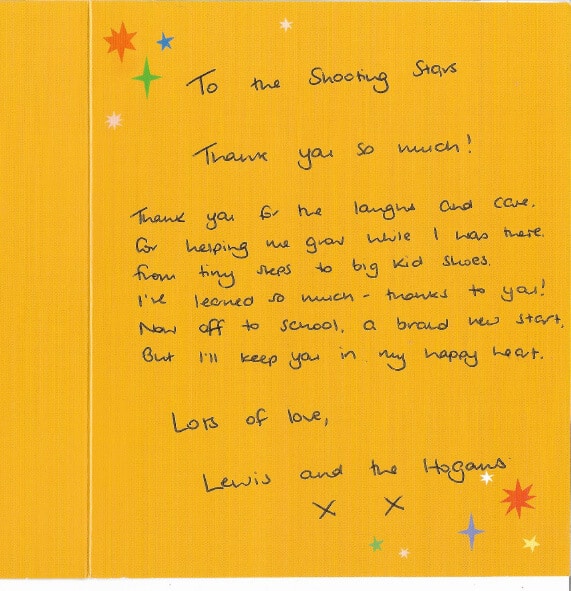 To the Shooting Stars
Thank you so much!
Thank you for the laughs and care.
for helping me grow while I was there.
from tiny steps to big kid shoes.
I've learned so much - thanks to you!
Now off to school, a brand new start,
But I'll keep you in my happy heart.
Lots of love,
Lewis and the Hogans
X X